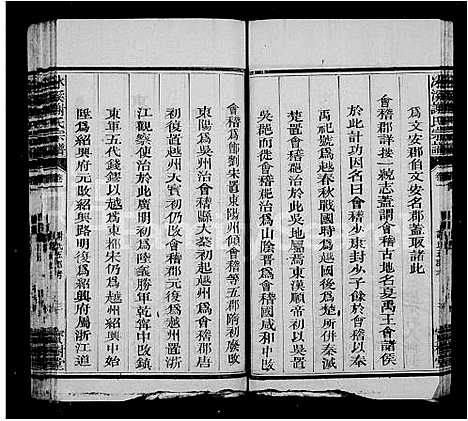 爲文安郡伯文安名郡蓋取諸此
會稽郡詳按一統志蓋謂會稽古地名夏禹王會諸侯
於此計功因名曰會稽少康封少子餘於會稽以奉
禹祀號爲越春秋戰國時爲越國後爲楚所併秦滅
楚置會稽郡治於此吳地屬焉東漢順帝初以吳置
吳郡而徙會稽郡治爲山陰晉爲會稽國咸和中改
會稽爲鄮劉宋置東陽州傾會稽等五郡隋初廢改
東陽爲吳州治會稽縣大業初起越州爲會稽郡唐
初復置越州天寶初仍改會稽郡元復爲越州置浙
江觀察使治於此廣明初爲陞義勝軍乾寧中改鎮
東軍五代錢鏐以越爲東都宋仍爲越州紹興中始
陞爲紹興府元改紹興路明復爲紹興府屬浙江道